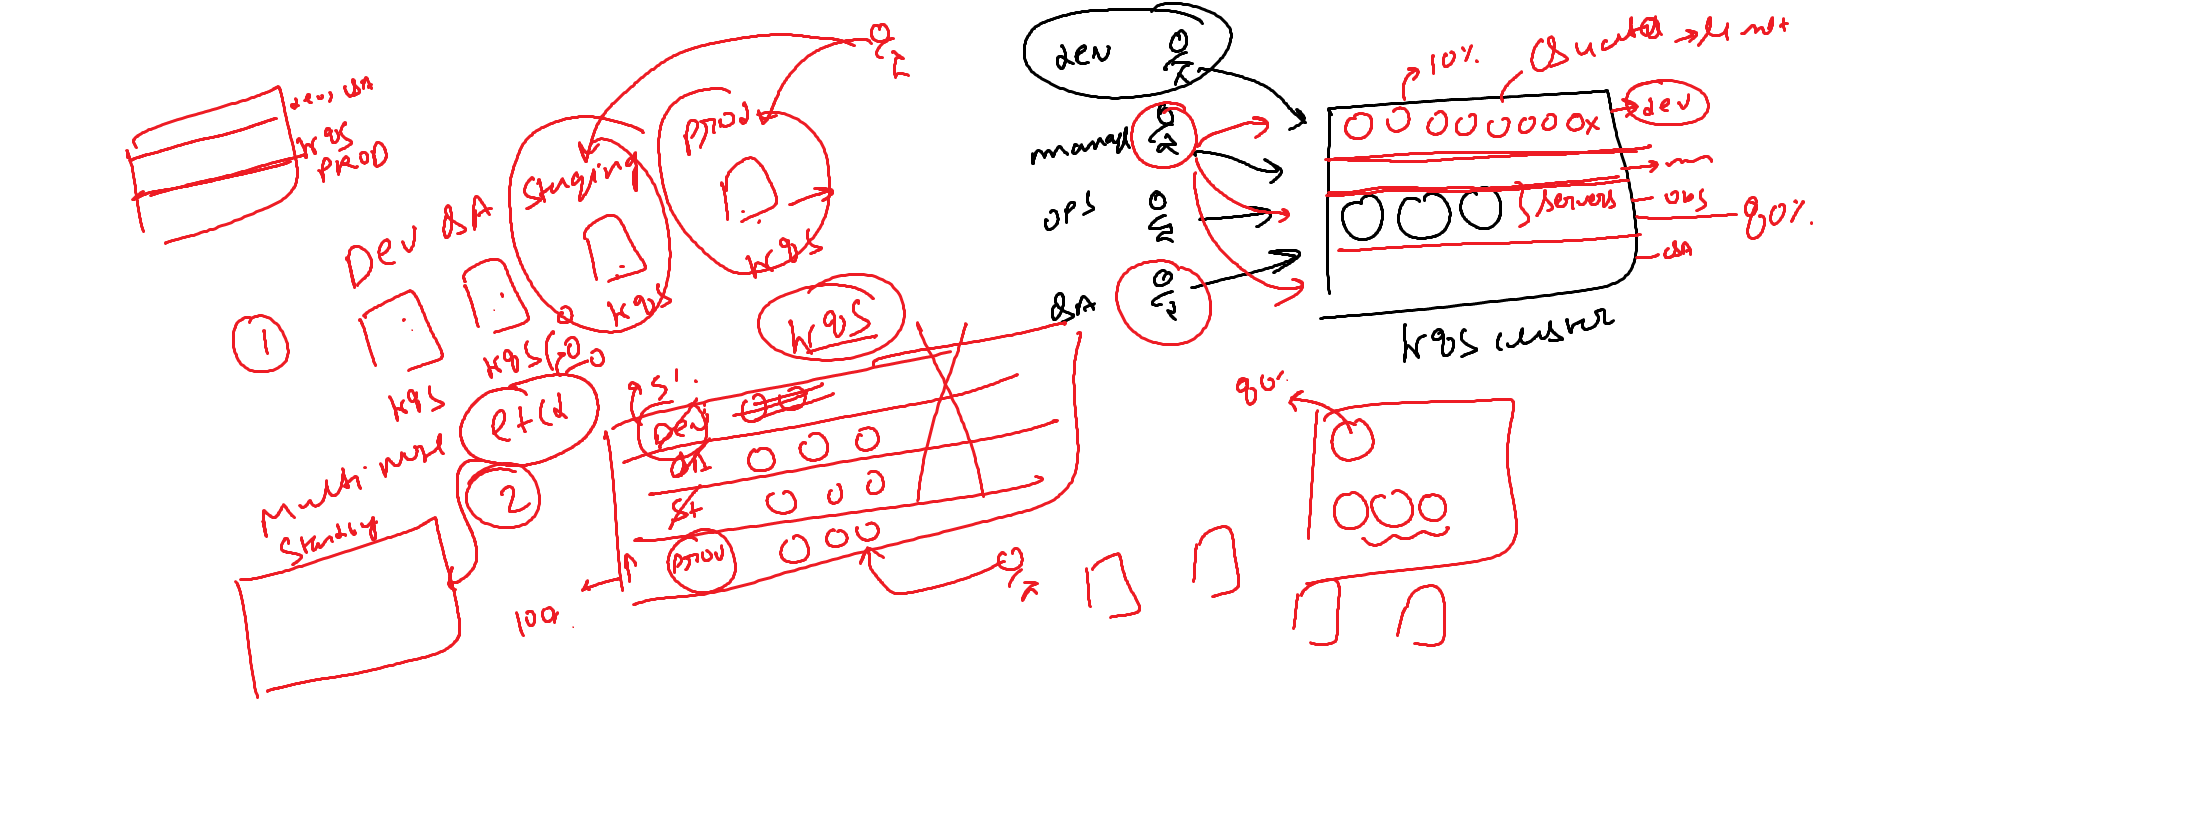 dev, QA
K8S
PROD
Dev QA
staging
prod
K8S
K8S
K8S
K8S
K8S
1
etcd
2
Multi
Standby
5%
Dev
QA
St
prod
100
dev
manag
OPS
QA
10%
Quota → Limit
dev
servers
obs
80%
QA
K8S cluster
80%